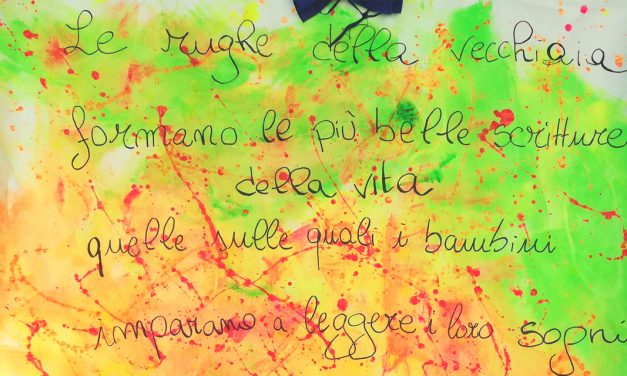 Le rughe della vecchiaia
formano le più belle scritture
della vita
quelle sulle quali i bambini
imparano a leggere i loro sogni